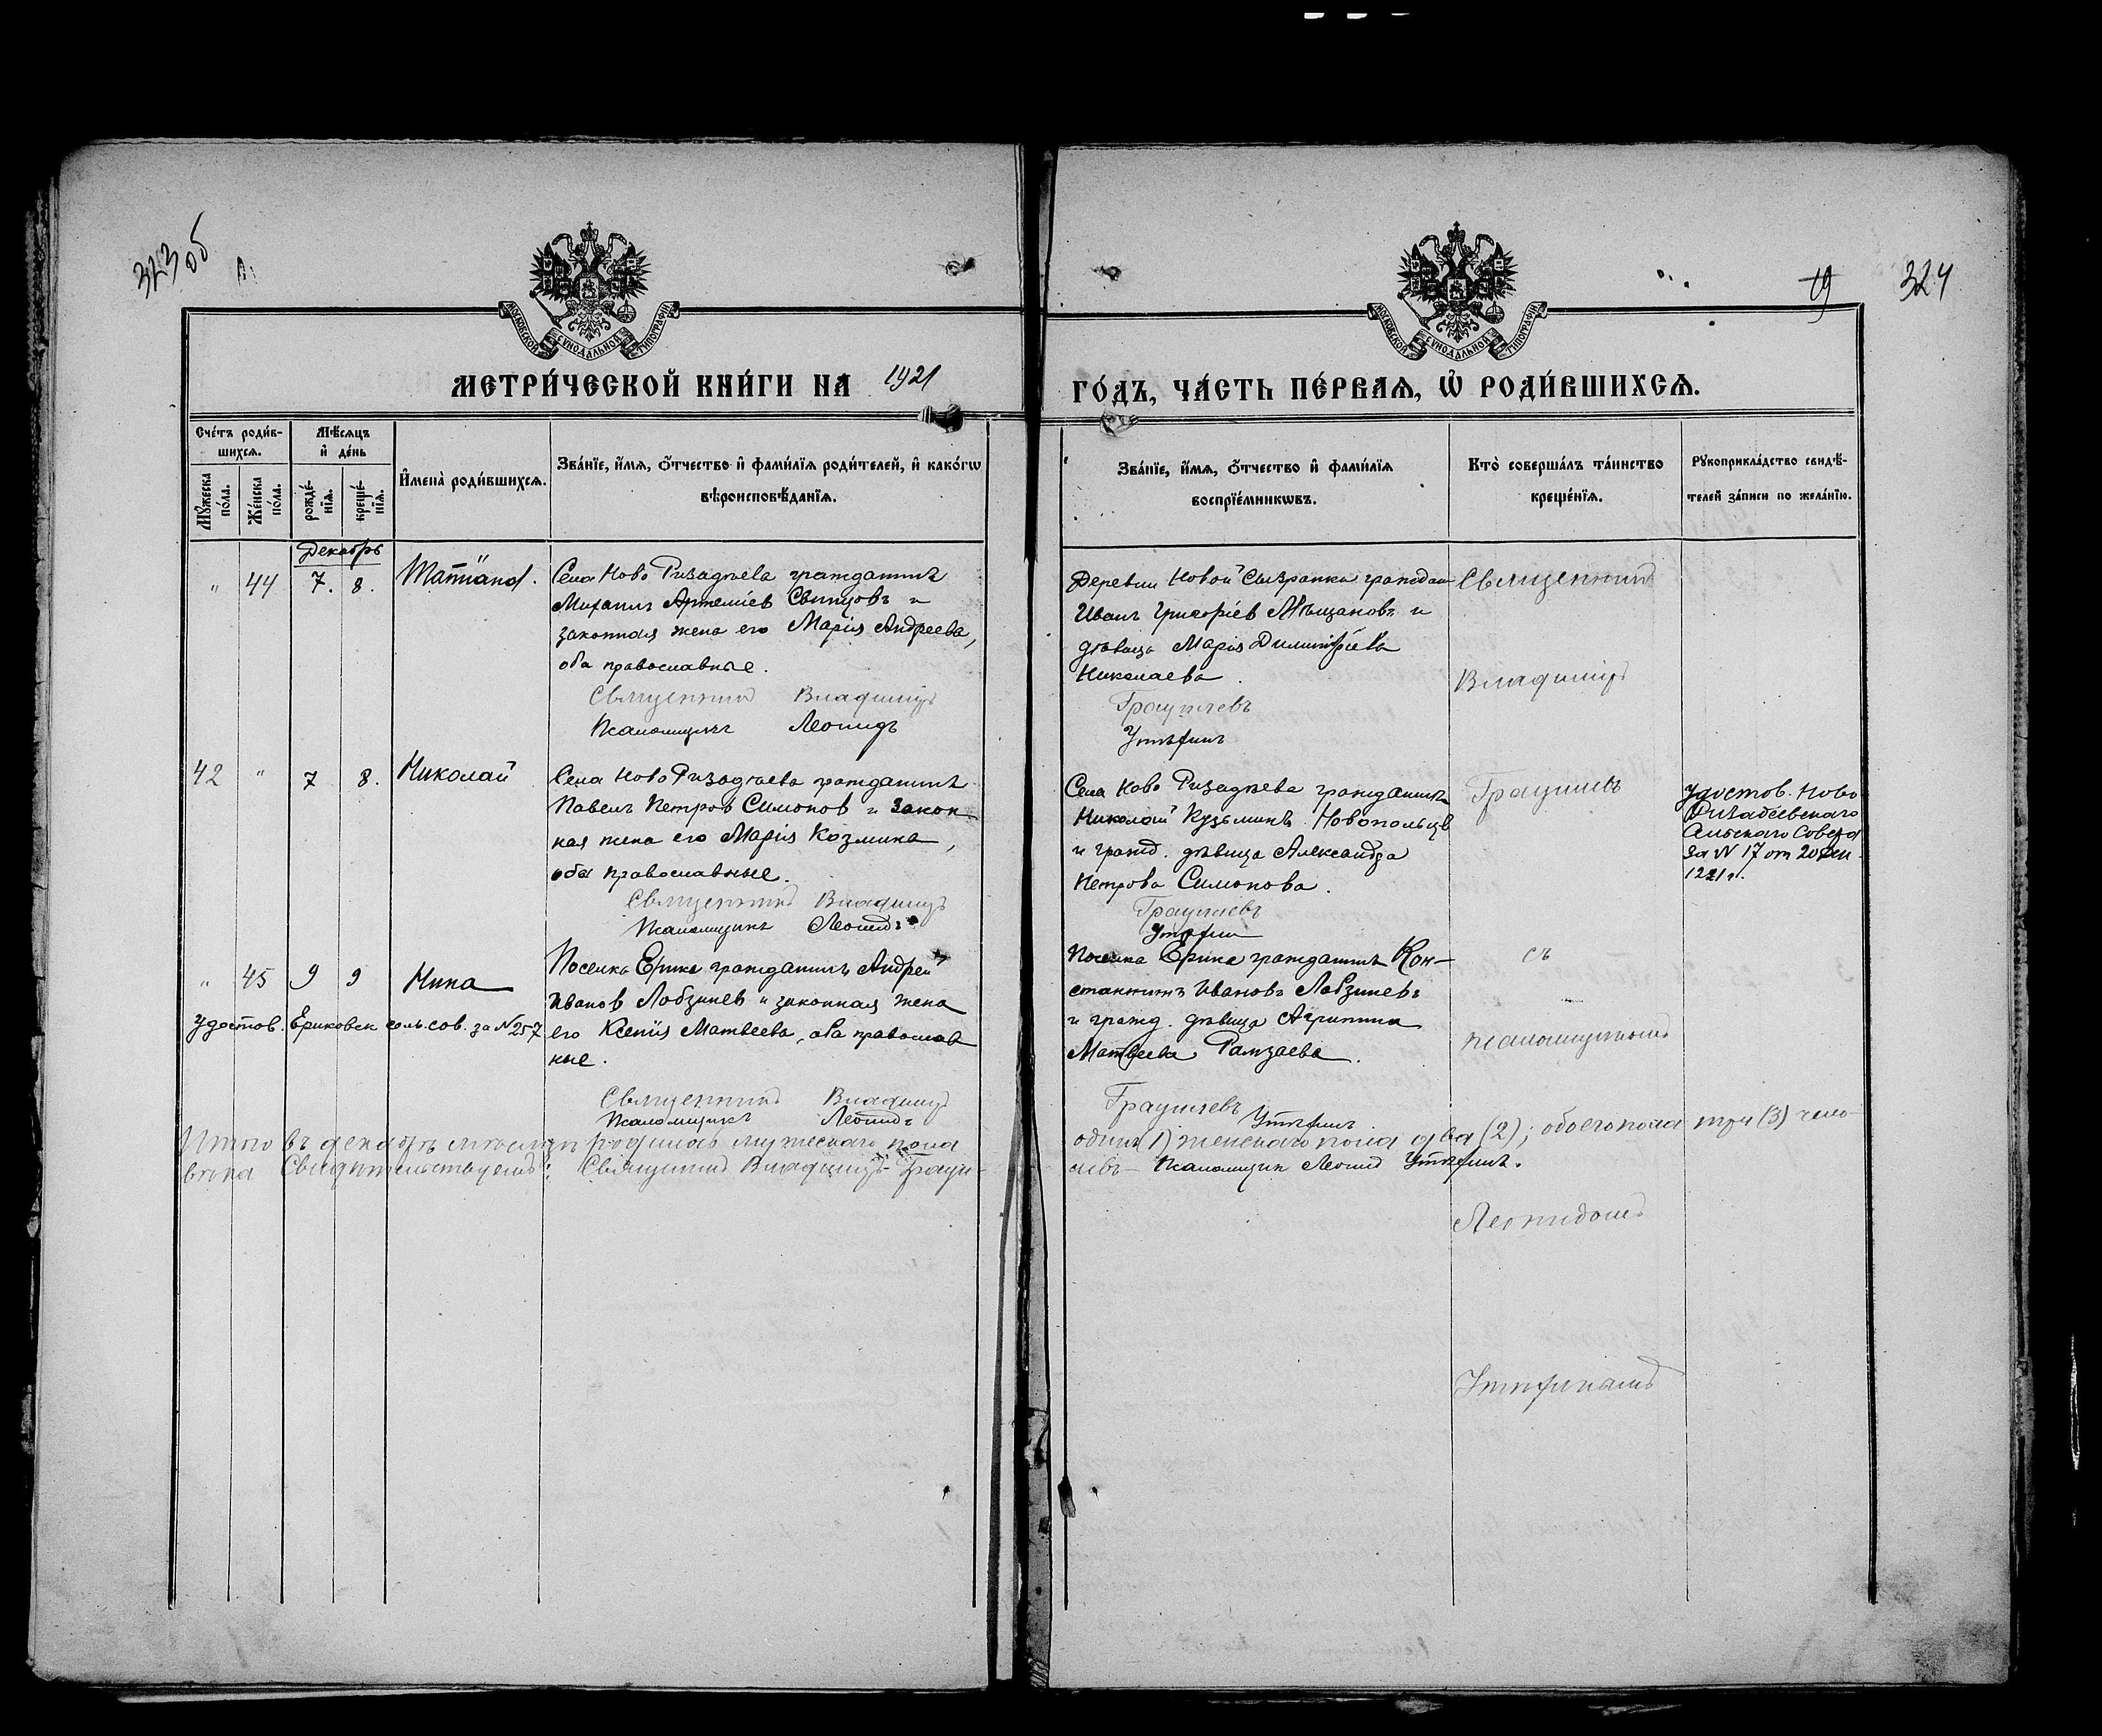 323 об
19 324
МОСКОВСКОЙ СѴНОДАЛЬНОЙ ТИПОГРАФІИ
МОСКОВСКОЙ СѴНОДАЛЬНОЙ ТИПОГРАФІИ
МЕТРИ́ЧЕСКОЙ КНИ́ГИ НА 1921
ГО́ДЪ, ЧА́СТЬ ПЕ́РВАЯ, Ѡ РОДИ́ВШИХСЯ.
Сче́тъ роди́в-
шихся.
Мꙋ́жеска по́ла.
Же́нска по́ла.
Мѣ́сяцъ
и҆ де́нь
рожде́-
нїя.
креще́-
нїя.
И҆мена̀ роди́вшихся.
Зва́нїе, и҆́мя, ѻ҆́тчество и҆ фами́лїя роди́телей, и҆ како́гѡ
вѣроисповѣ́данїя.
Зва́нїе, и҆́мя, ѻ҆́тчество и҆ фами́лїя
воспрїе́мникѡвъ.
Кто̀ соверша́лъ та́инство
креще́нїя.
Рꙋкоприкла́дство свидѣ́-
телей за́писи по жела́нїю.
Декабрь
" 44 7. 8. Татіана.
Села Ново Ризадѣева гражданинъ
Михаилъ Артеміев Свинцовъ и
законная жена его Марія Андреева,
оба православные.
Священник Владимиръ
Псаломщикъ Леонидъ
Деревни Новой Сызранки граждан
Иванъ Григоріев Мѣщановъ и
дѣвица Марія Димитріева
Николаева.
Граціилевъ
Утѣхинъ
Священник
Владимиръ
42 " 7 8. Николай
Села Ново Ризадѣева гражданинъ
Павелъ Петров Симонов и закон
ная жена его Марія Козмина,
оба православные.
Священник Владимиръ
Псаломщикъ Леонидъ
Села Ново Ризадѣева гражданинъ
Николай Кузьминъ Новопольцев
и гражд. дѣвица Александра
Петрова Симонова.
Граціилевъ
Утѣхин
Граціилевъ
Удостов. Ново
Ризадеевскаго
Сельскаго Совета
За № 17 от 20 Ден.
1921 г.
" 45 9 9 Нина
Удостов. Ериковск сельсов. за № 257
Поселка Ерика гражданинъ Андрей
Иванов Лобзинев и законная жена
его Ксенія Матвеева, оба православ
ные.
Священник Владимир
Псаломщикъ Леонидъ
Поселка Ерика гражданинъ Кон-
стантинъ Ивановъ Лобзиневъ
и гражд. дѣвица Агрипина
Матвеева Рамзаева.
Граціилевъ
Утѣхинъ
съ
псаломщиком
Леонидом
Утѣхиным
Итого въ декабрѣ мѣсяцѣ родилось мужескаго пола
одинъ (1) женскаго пола два (2); обоего пола три (3) чело-
вѣка Свидѣтельствуемъ: Священник Владимиръ Граціи-
левъ – Псаломщик Леонид Утѣхинъ.